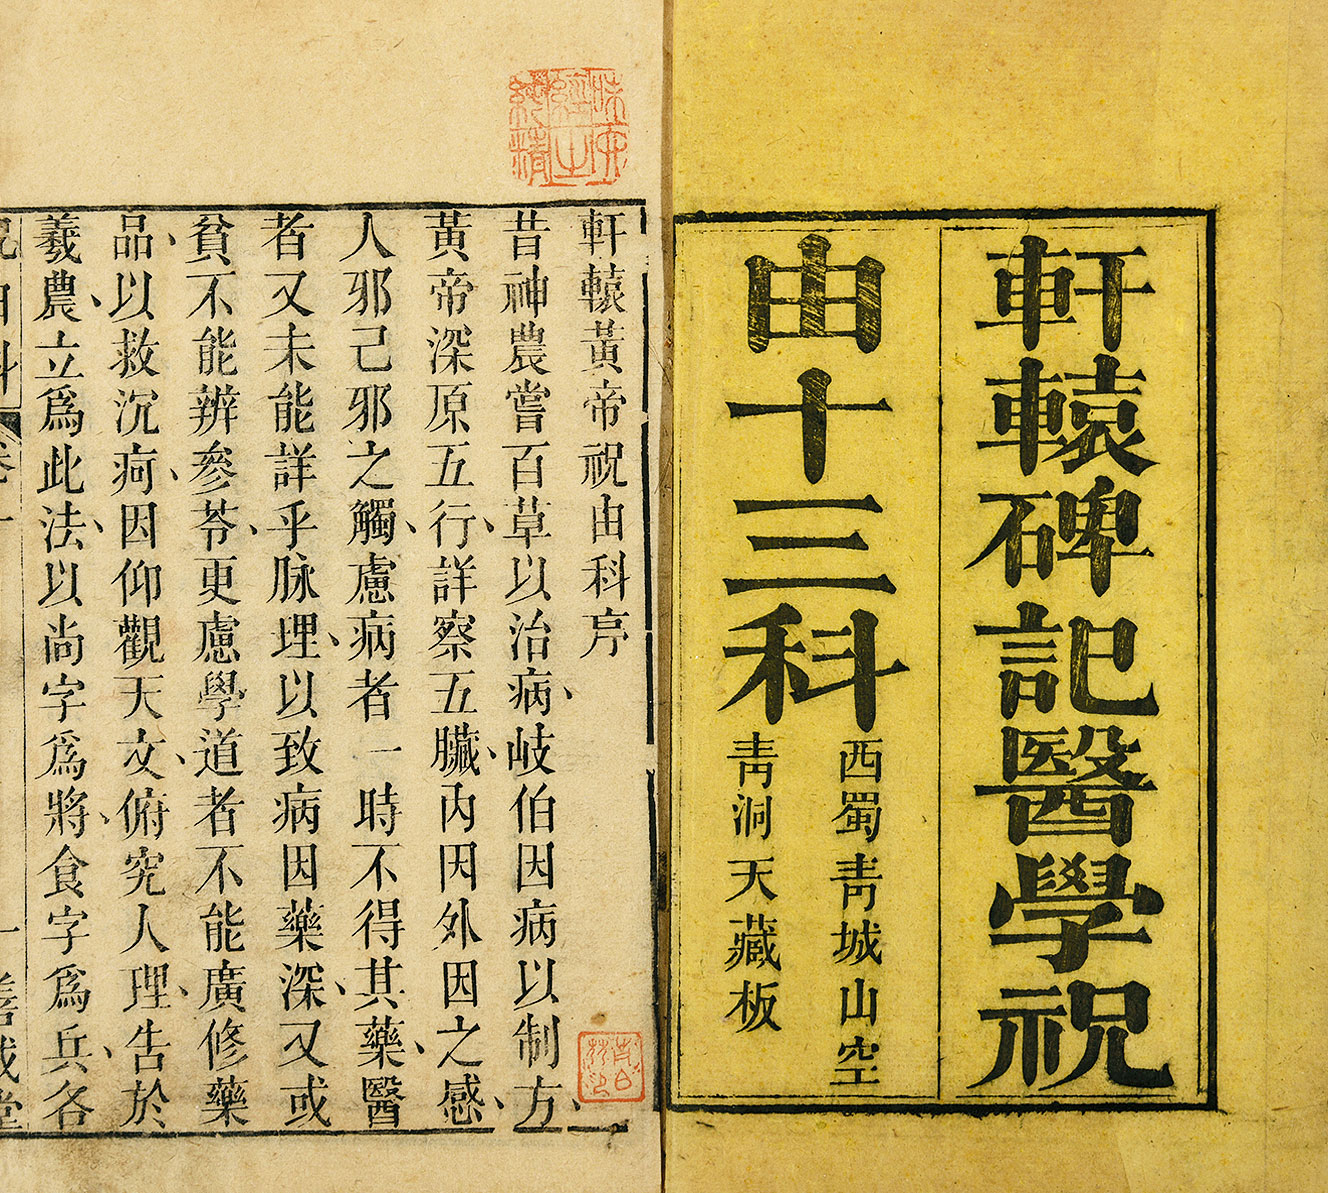 軒轅碑記醫學祝
由十三科
西蜀青城山空
青洞天藏板
軒轅黃帝祝由科序
昔神農嘗百草以治病、岐伯因病以制方、
黃帝深原五行、詳察五臟、內因外因之感、
人邪己邪之觸、慮病者一時不得其藥、醫
者又未能詳乎脉理、以致病因藥深、又或
貧不能辨參苓、更慮學道者不能廣修藥
品、以救沉疴、因仰觀天文、俯究人理、告於
羲農、立爲此法、以尚字爲將、食字爲兵、各